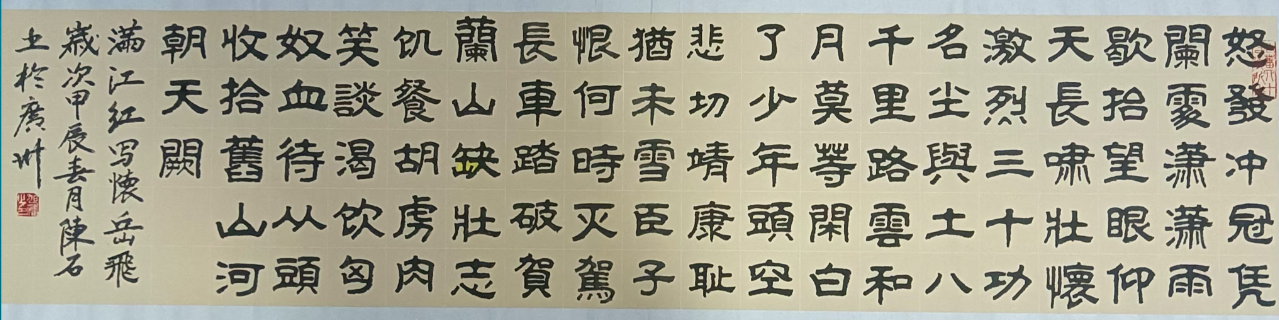 怒發冲冠凭
闌處潇潇雨
歇抬望眼仰
天長啸壯懷
激烈三十功
名尘與土八
千里路雲和
月莫等閑白
了少年頭空
悲切靖康耻
猶未雪臣子
恨何時灭駕
長車踏破賀
蘭山缺壯志
饥餐胡虏肉
笑談渴饮匈
奴血待从頭
收拾舊山河
朝天闕
满江红写懷岳飛
歲次甲辰春月陳石
土於廣州